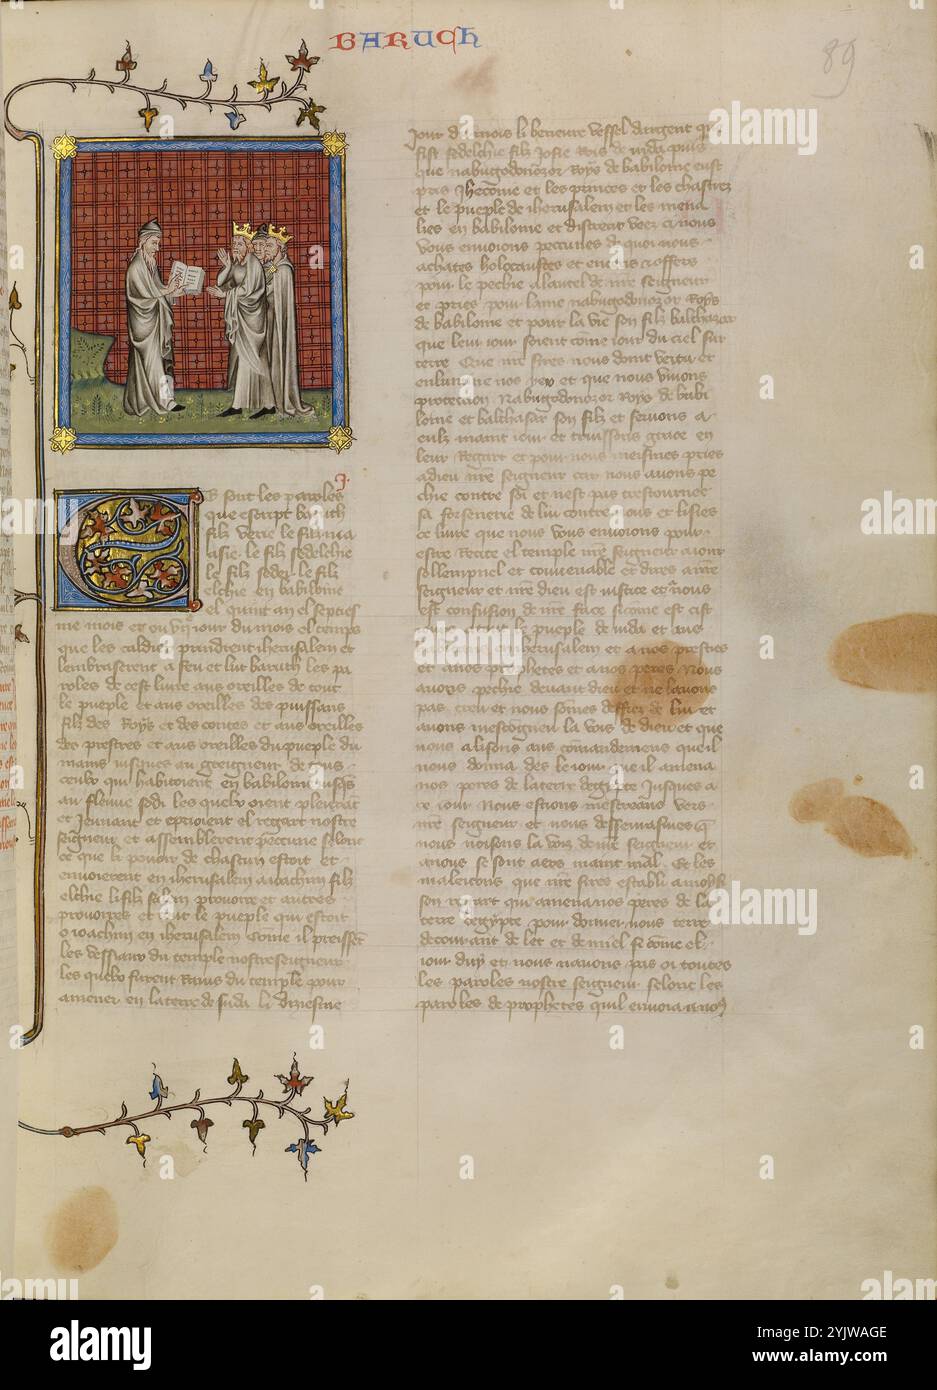 BARUCH
89
J.
sont les paroles
que escript baruch
filz
asie le filz sedechie
le filz sedei le filz
elchie en babiloine
el quint an el septies
me mois et ou jour du mois el temps
que les caldieu prandrent iherusalem et
lembraserent a feu et lut baruch les pa
roles de cest livre aus oreilles de tout
le pueple et aus oreilles des puissans
filz des Roys et des contes et aus oreilles
des prestres et aus oreilles du pueple du
mains iusques au greigneur de tous
ceulx qui habitoient en babiloine iusqs
au fleuve sodi les quelx oient plourant
et Jeunant et eprioient el regart nostre
seigneur et assemblerent peccune selonc
ce que li pouoir de chascun estoit et
envoierent en iherusalem a ioachim filz
elchie li filz salem prouoire et autres
prouoires et tout le pueple qui estoit
o ioachim en iherusalem Come il preissent
les vessiaux du temple nostre seigneur
les quelx furent Ravis du temple pour
amener en la terre de Juda li diziesme
Jour du mois li beneure vessel dargent q
fist sedechie filz Josie Roy de iuda puis
que nabugodonozor Roys de babiloine eust
pris Jhecome et les princes et les
et le pueple de iherusalem et les mena
lies en babiloine et distrent veez ci nous
vous envoions peccunes de quoi nous
achates holocaustes et encens et offers
pour le pechie a lautel de nre seigneur
et pries pour lame nabugodonozor Roys
de babiloine et pour la vie son filz balthazar
que leur iour soient come iour du ciel sur
terre Que nre sires nous doint vertu et
enlumine nos yex et que nous vivions
protection Nabugodonozor Roys de babi
loine et balthasar son filz et servons a
eulz maint iour et truissons grace en
leur Regart et pour nous meismes pries
a dieu nre seigneur car nous avons pe
chie contre soi et nest pas trestournee
sa forsenerie de lui contre nous et lisies
ce livre que nous vous envoions pour
estre Recite el temple nre seigneur a iour
sollempnel et convenable et dires a nre
seigneur et nre dieu est iustice et a nous
est confusion de nre face si come est cist
pueple de iuda et aus
en iherusalem et a nos prestres
et a nos prophetes et a nos peres Nous
avons pechie devant dieu et ne lavons
pas creu et nous somes de lui et
avons mescogneu la vois de dieu et que
nous alisons aus comandemens que il
nous donna des le iour que il amena
nos peres de la terre degypte Jusques a
ce iour Nous estions mescreans vers
nre seigneur et nous
nous noisons la voiz de nre seigneur et
a nous se sont aers maint mal Et les
maleicons que nre sires establi a moyse
son qui amena nos peres de la
terre degypte pour donner nous terre
decourant de let et de miel si come el
iour duy et nous navons pas oi toutes
les paroles nostre seigneur selonc les
paroles de prophetes quil envoia a nos
alamy
Image ID: 2YJWAGE
www.alamy.com